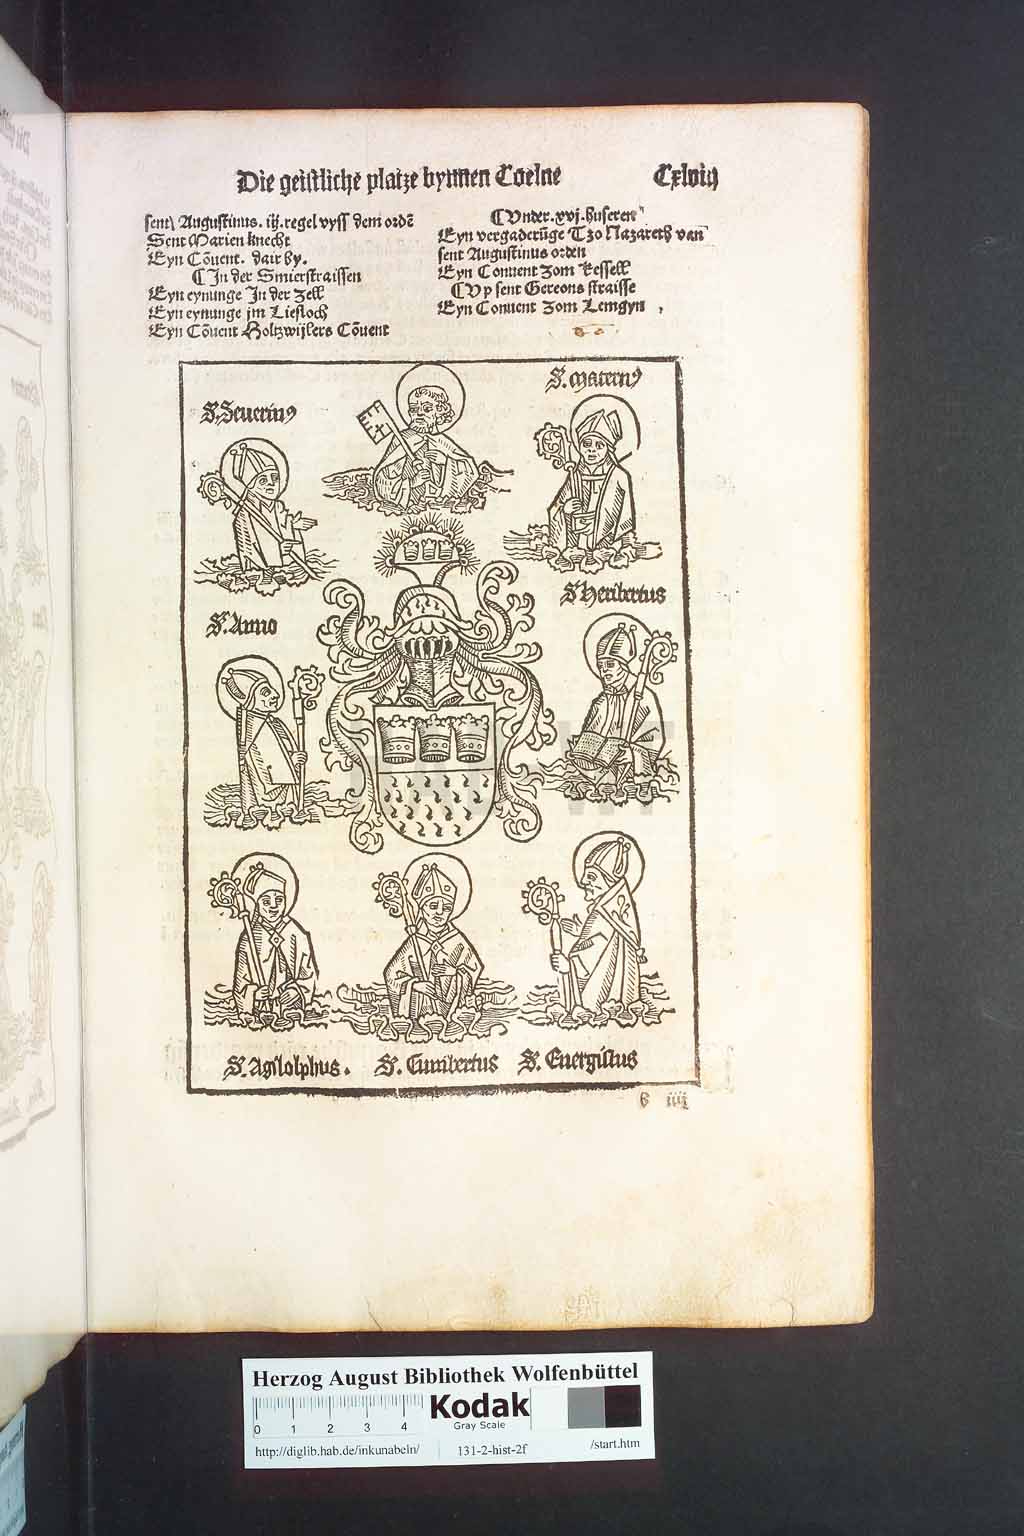 Die geistliche platze bynnen Coelne Cxlviij
sent Augustinus. iij. regel vyss dem ordē
Sent Marien knecht
Eyn Cōuent. dair by.
¶ In der Smierstraissen
Eyn eynunge In der Zell
Eyn eynunge jm Liesloch
Eyn Cōuent Holtzwijlers Cōuent
¶ Vnder. xvj. huseren
Eyn vergaderūge Tzo Nazareth van
sent Augustinus orden
Eyn Conuent zom Kessell
¶ Vp sent Gereons straisse
Eyn Conuent zom Lemgyn
S. Seuerinꝰ
S. Maternꝰ
S. Anno
S. Heribertus
S. Agilolphus.
S. Cunibertus
S. Euergislus
iiij
Herzog August Bibliothek Wolfenbüttel
Kodak
Gray Scale
0 1 2 3 4
http://diglib.hab.de/inkunabeln/ 131-2-hist-2f /start.htm